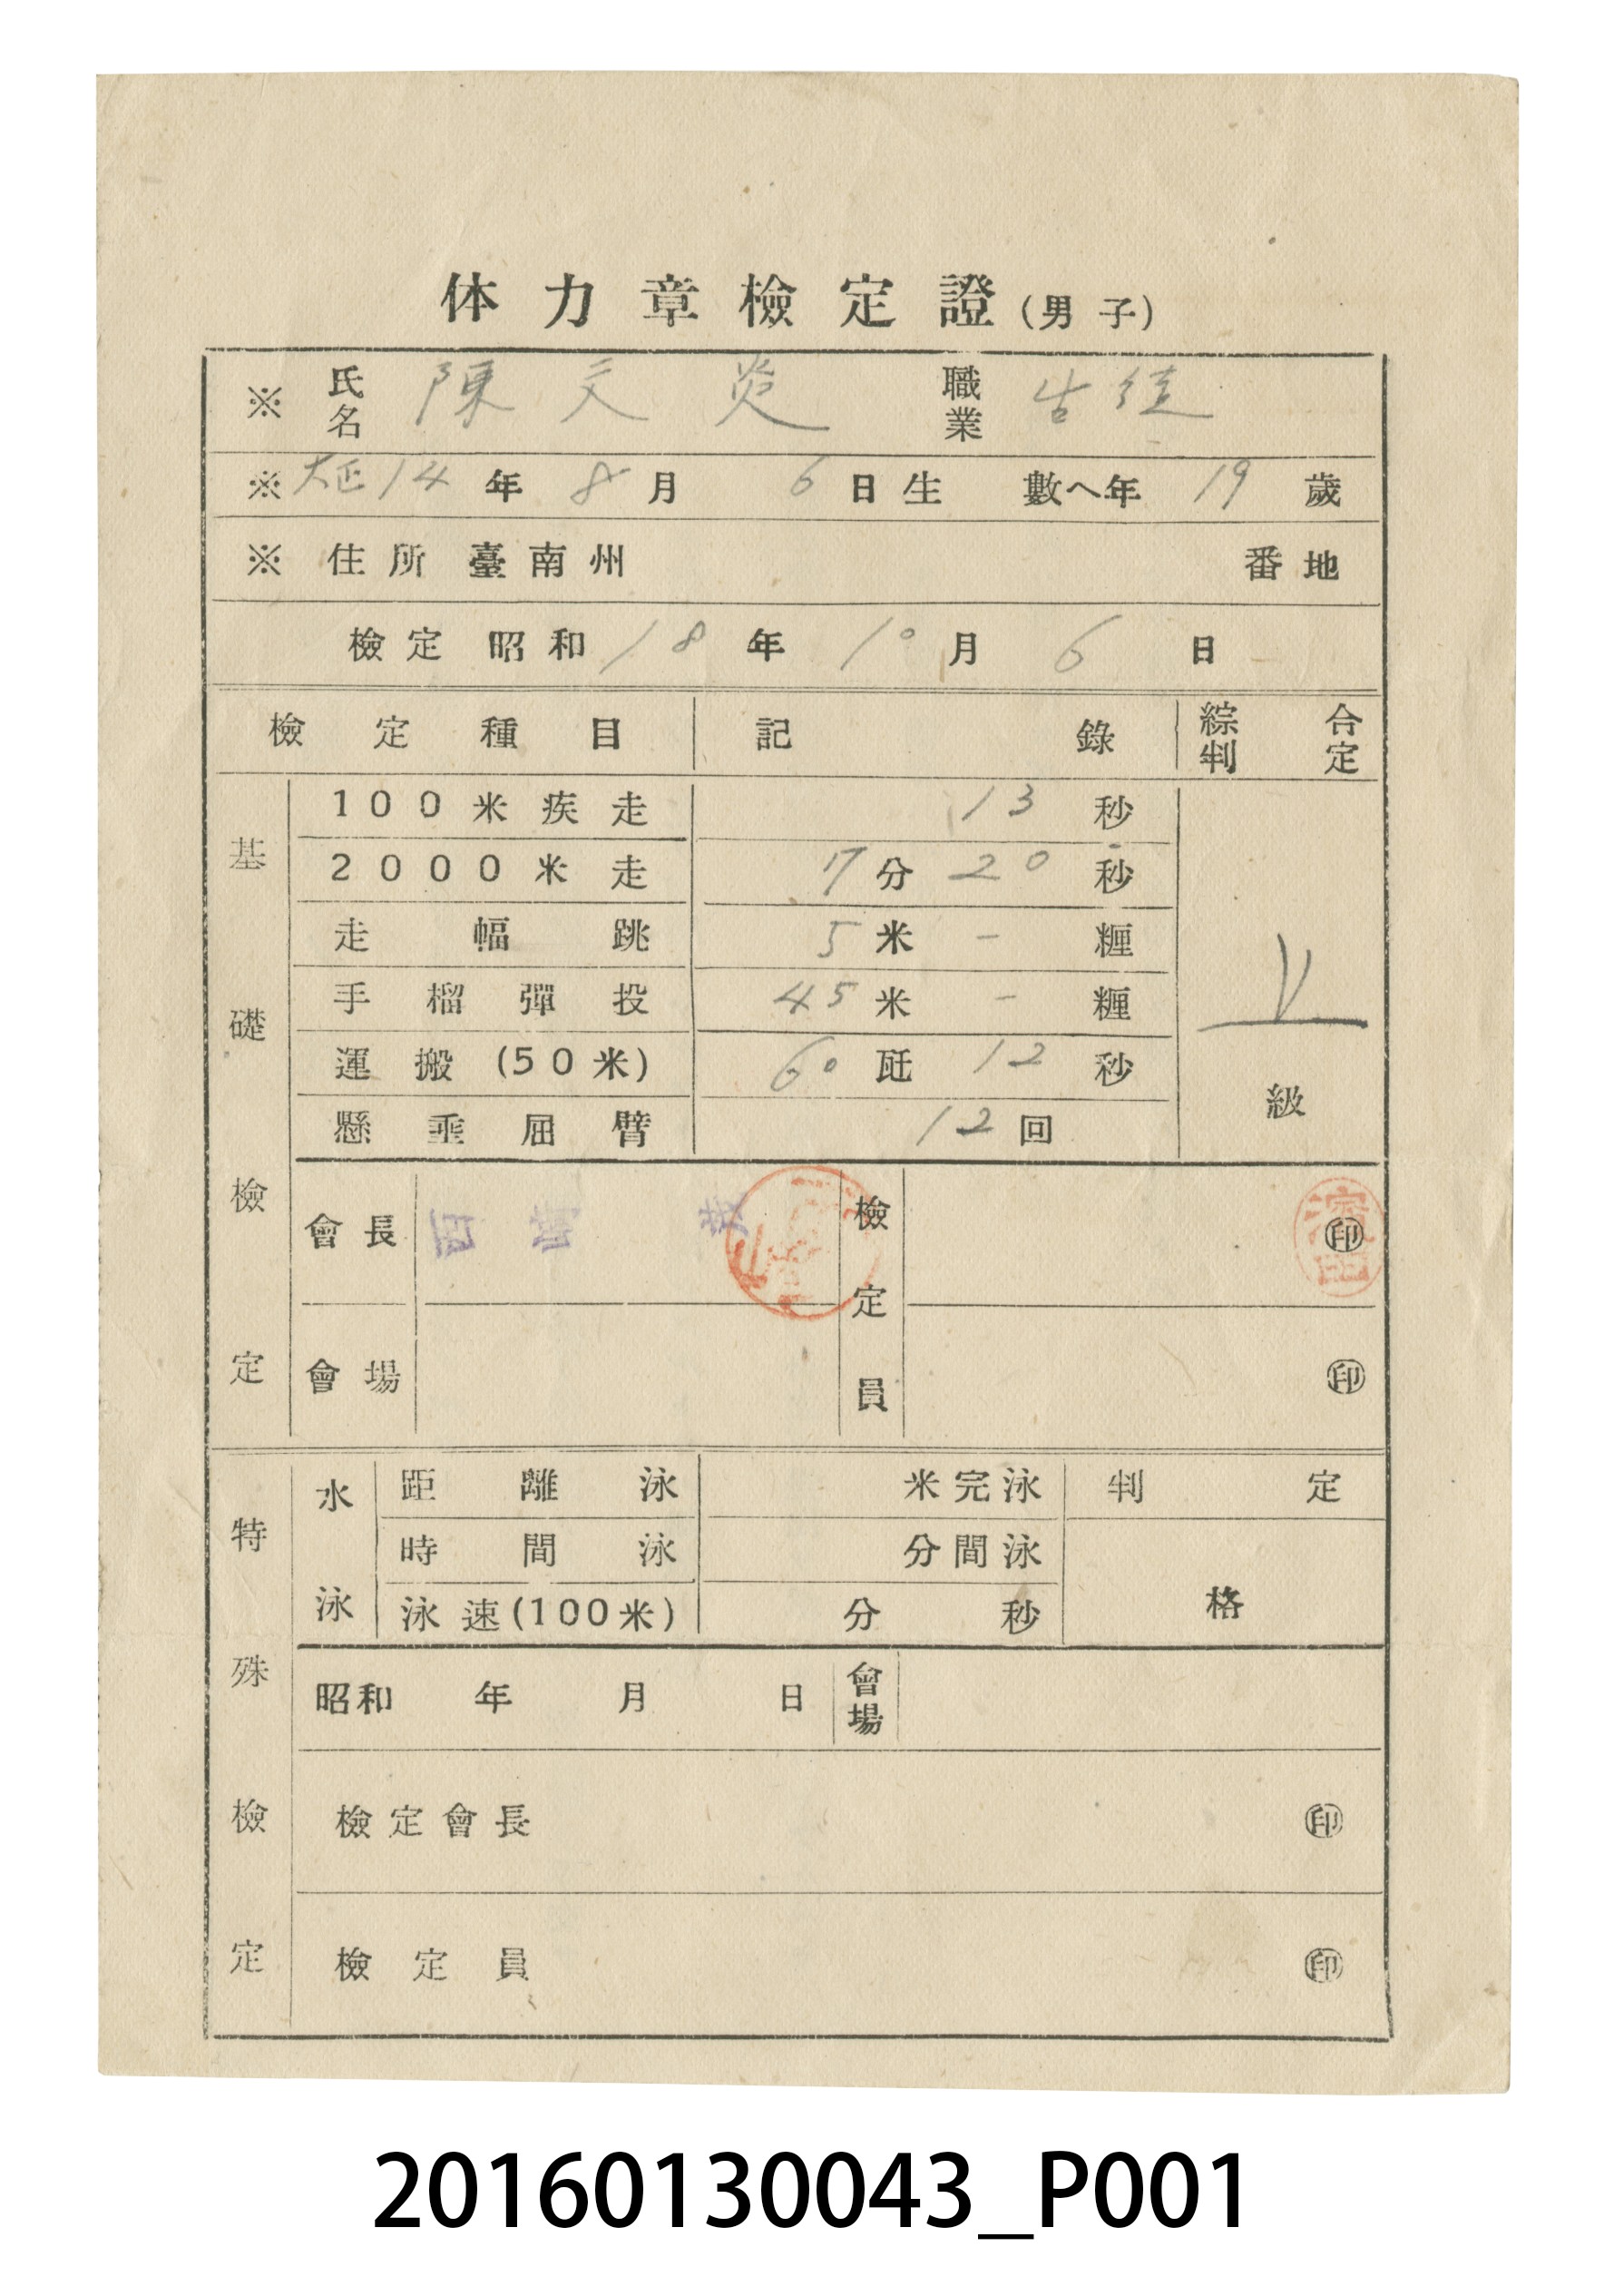 体力章檢定證(男子)
※ 氏名 陳文炎 職業 生徒
※ 大正14年8月6日生 數へ年19歲
※ 住所 臺南州 番地
檢定 昭和18年10月6日
檢定種目 記錄 綜合判定
基礎檢定
100米疾走 13秒
2000米走 7分20秒
走幅跳 5米-糎
手榴彈投 45米-糎
運搬(50米) 60瓩12秒
懸垂屈臂 12回
級
會長 檢定員 ㊞
濱田
會場 ㊞
特殊檢定
水泳 距離泳 米完泳 判定
時間泳 分間泳
泳速(100米) 分 秒 格
昭和 年 月 日 會場
檢定會長 ㊞
檢定員 ㊞
20160130043_P001